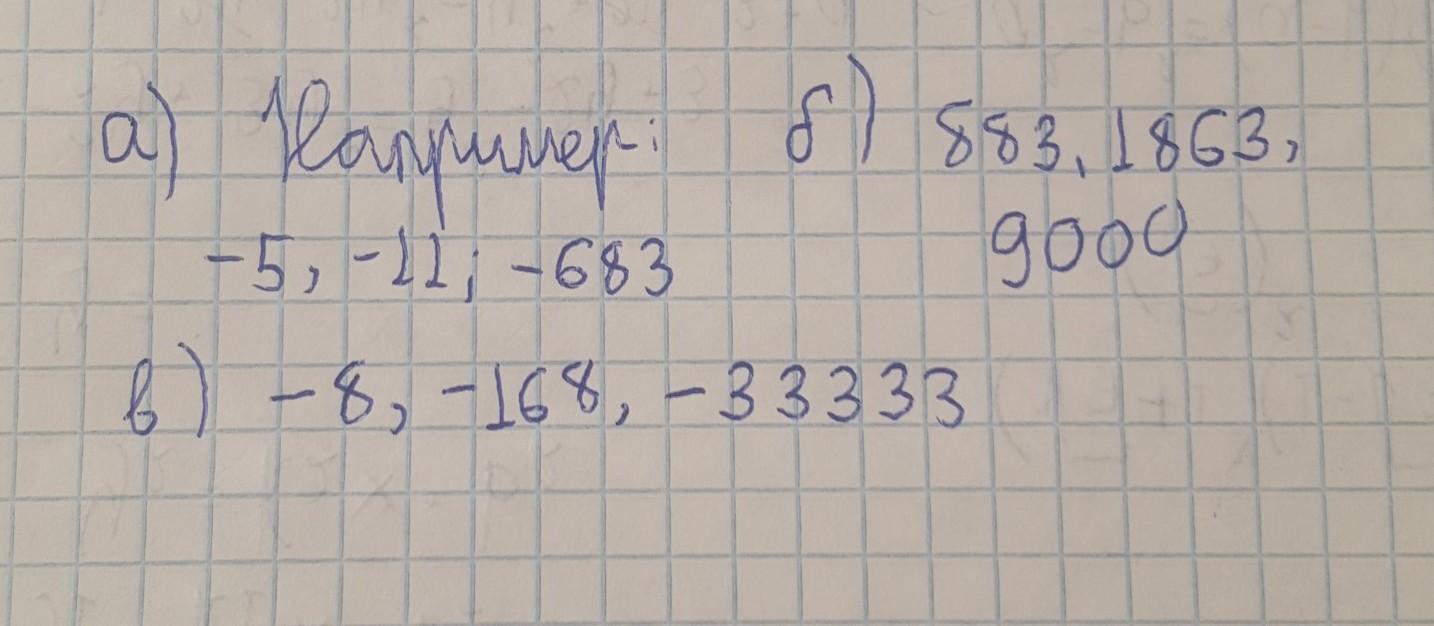 а) Например: б) 883, 1863,
-5, -11; -683 9000
в) -8, -168, -33333